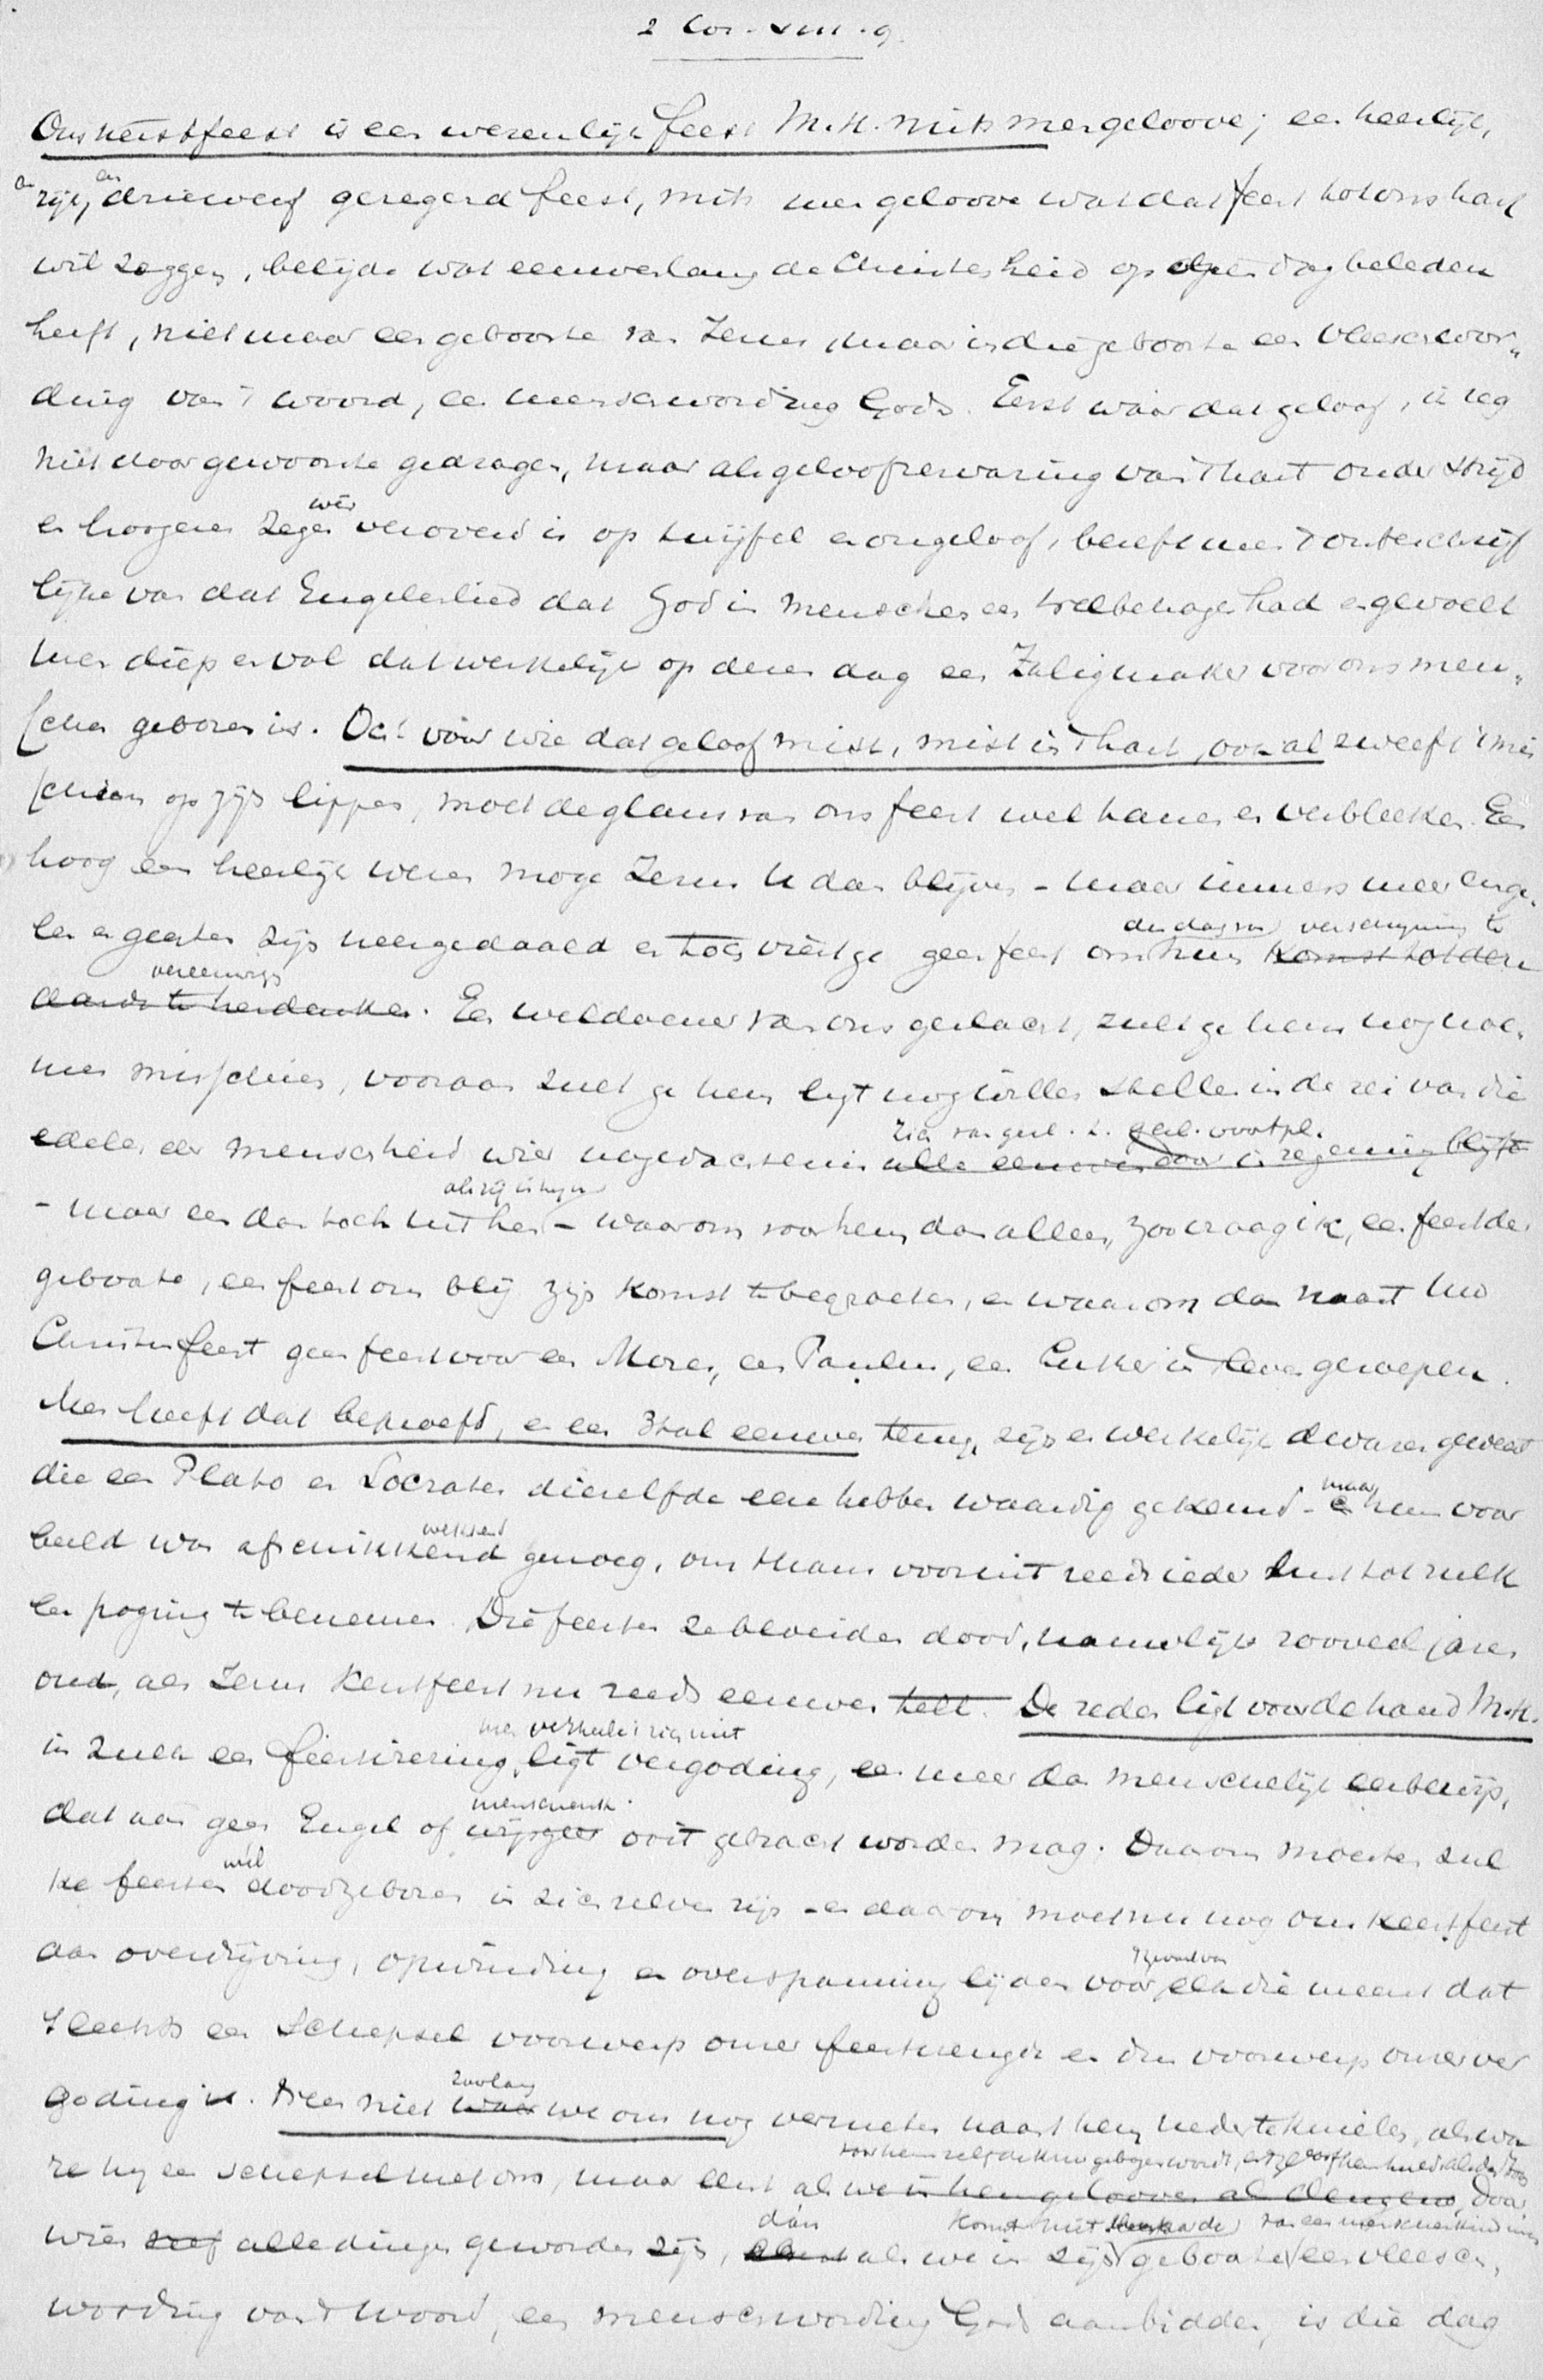 2 Cor. VIII. 9.
Ons kerstfeest is een wezenlijk feest M.H. mits men geloove; een heerlijk,
een rijk, een driewerf gezegend feest, mits men geloove wat dat feest tot ons hart
wil zeggen, belijde wat eeuwenlang de Christenheid op dezen dag beleden
heeft, niet maar een geboorte van Jezus, maar in die geboorte een vleeschwor„
ding van 't woord, een menschwording Gods. Eerst wáár dat geloof, ik zeg
niet door gewoonte gedragen, maar als geloofservaring van 't hart onder strijd
en hoogeren zegen wêr veroverd is op twijfel en ongeloof, beseft men 't onbeschrijf
lijke van dat Engelenlied dat God in menschen een welbehagen had en gevoelt
men diep en vol dat werkelijk op dezen dag een Zaligmaker voor ons men„
schen geboren is. Ook vóór wie dat geloof mist, mist in 't hart, ook al zweeft 't mis
schien op zijn lippen, moet de glans van ons feest wel tanen en verbleeken. Een
hoog een heerlijk wezen moge Jezus U dan blijven – maar immers meer enge„
len en geesten zijn neergedaald en toch viert ge geen feest om hun komst tot dere
den dag van verschijning te
aarde te herdenken. vereeuwigen
Een weldoener van ons geslacht, zult ge hem nog noe„
men misschien, vooraan zult ge hem ligt nog willen stellen in de rei van die
edelen der menschheid wier nagedachtenis alle eeuwen door in zegening blijft
zich van gesl. t. gesl. voortpl.
– maar een dan toch uit hen – als zij is hij waarom voor hem dan alleen, zoo vraag ik, een feest der
geboorte, een feest om blij zijn komst te begroeten, en waarom dan naast Uw
Christusfeest geen feest voor een Mozes, een Paulus, een Luther in 't leven geroepen.
Men heeft dat beproefd, en een 3tal eeuwen terug, zijn er werkelijk dwazen geweest
die een Plato en Socrates diezelfde eere hebben waardig gekeurd – en maar hun voor
beeld was afschrikkend wekkend genoeg, om thans vooruit reeds ieder lust tot zulk
een poging te benemen. Die feesten ze bloeiden dood, nauwlijks zooveel jaren
oud, als Jezus Kerstfeest nu reeds eeuwen telt. De reden ligt voor de hand M.H.
in zulk een feestviering, men verheele 't zich niet ligt vergoding, een meer dan menschelijk eerbewijs,
dat aan geen Engel of wijsgeer menschenk. ooit gebracht worden mag. Daarom moesten zul
ke feesten wel doodgeboren in zichzelve zijn – en daarom moet nu nog ons Kerstfeest
aan overdrijving, opwinding en overspanning lijden voor elk die meent dat
slechts een schepsel voorwerp onzer feestvreugde en dus voorwerp onzer ver
goding is. Neen niet waar zoolang we ons nog vermeten naast hem neder te knielen, als wa
re hij een schepsel met ons, maar eerst als we in hem gelooven al
voor hem zelf de knie gebogen wordt, door
wien zelf alle dingen geworden zijn, dán als we in zijn komst niet de geboorte van een menschenkind een vleesch„
wording van 't Woord, een menschwording Gods aanbidden, is die dag